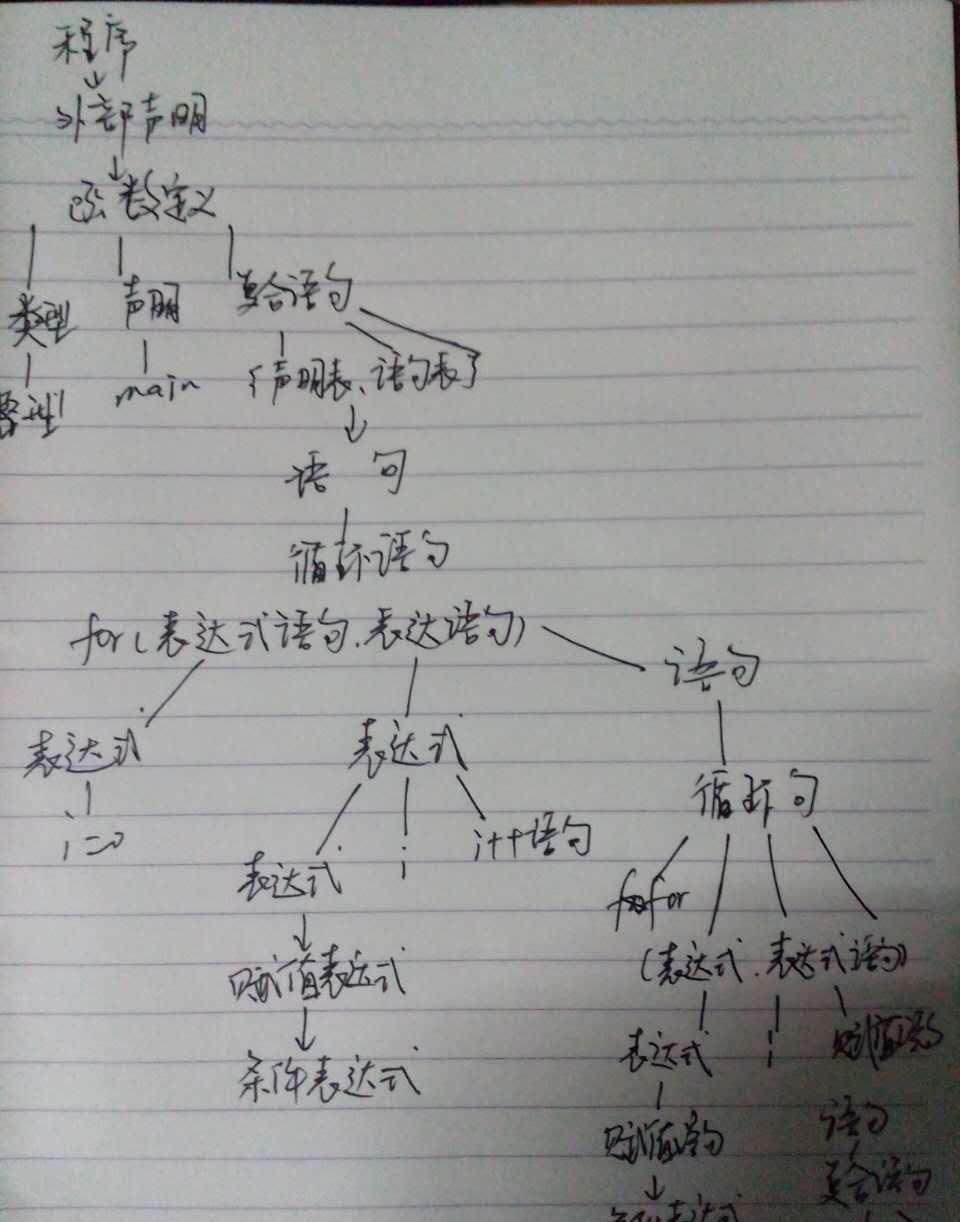 程序
外部声明
函数定义
类型 声明 复合语句
整型 main {声明表、语句表}
语 句
循环语句
for(表达式语句.表达语句) 语句
表达式 表达式 循环句
i=0 表达式 ; i++语句
for
赋值表达式 (表达式.表达式语句)
条件表达式 表达式 ; 赋值语句
赋值语句 语句
复合语句